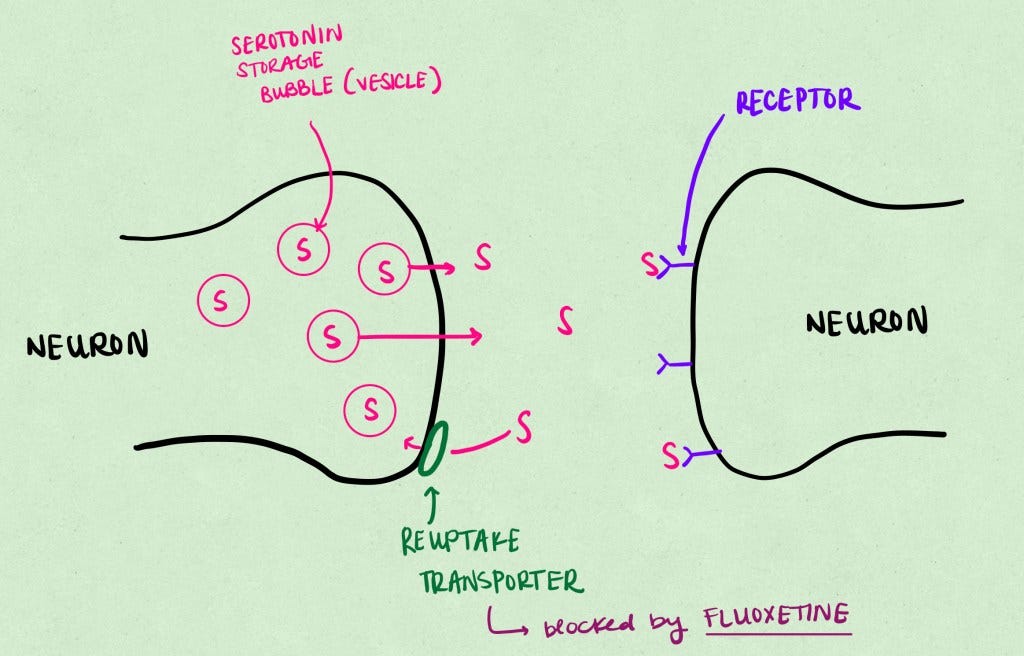 SEROTONIN
STORAGE
BUBBLE (VESICLE)
RECEPTOR
S
S
S
S
S
S
S
S
S
S
NEURON
NEURON
REUPTAKE
TRANSPORTER
blocked by FLUOXETINE